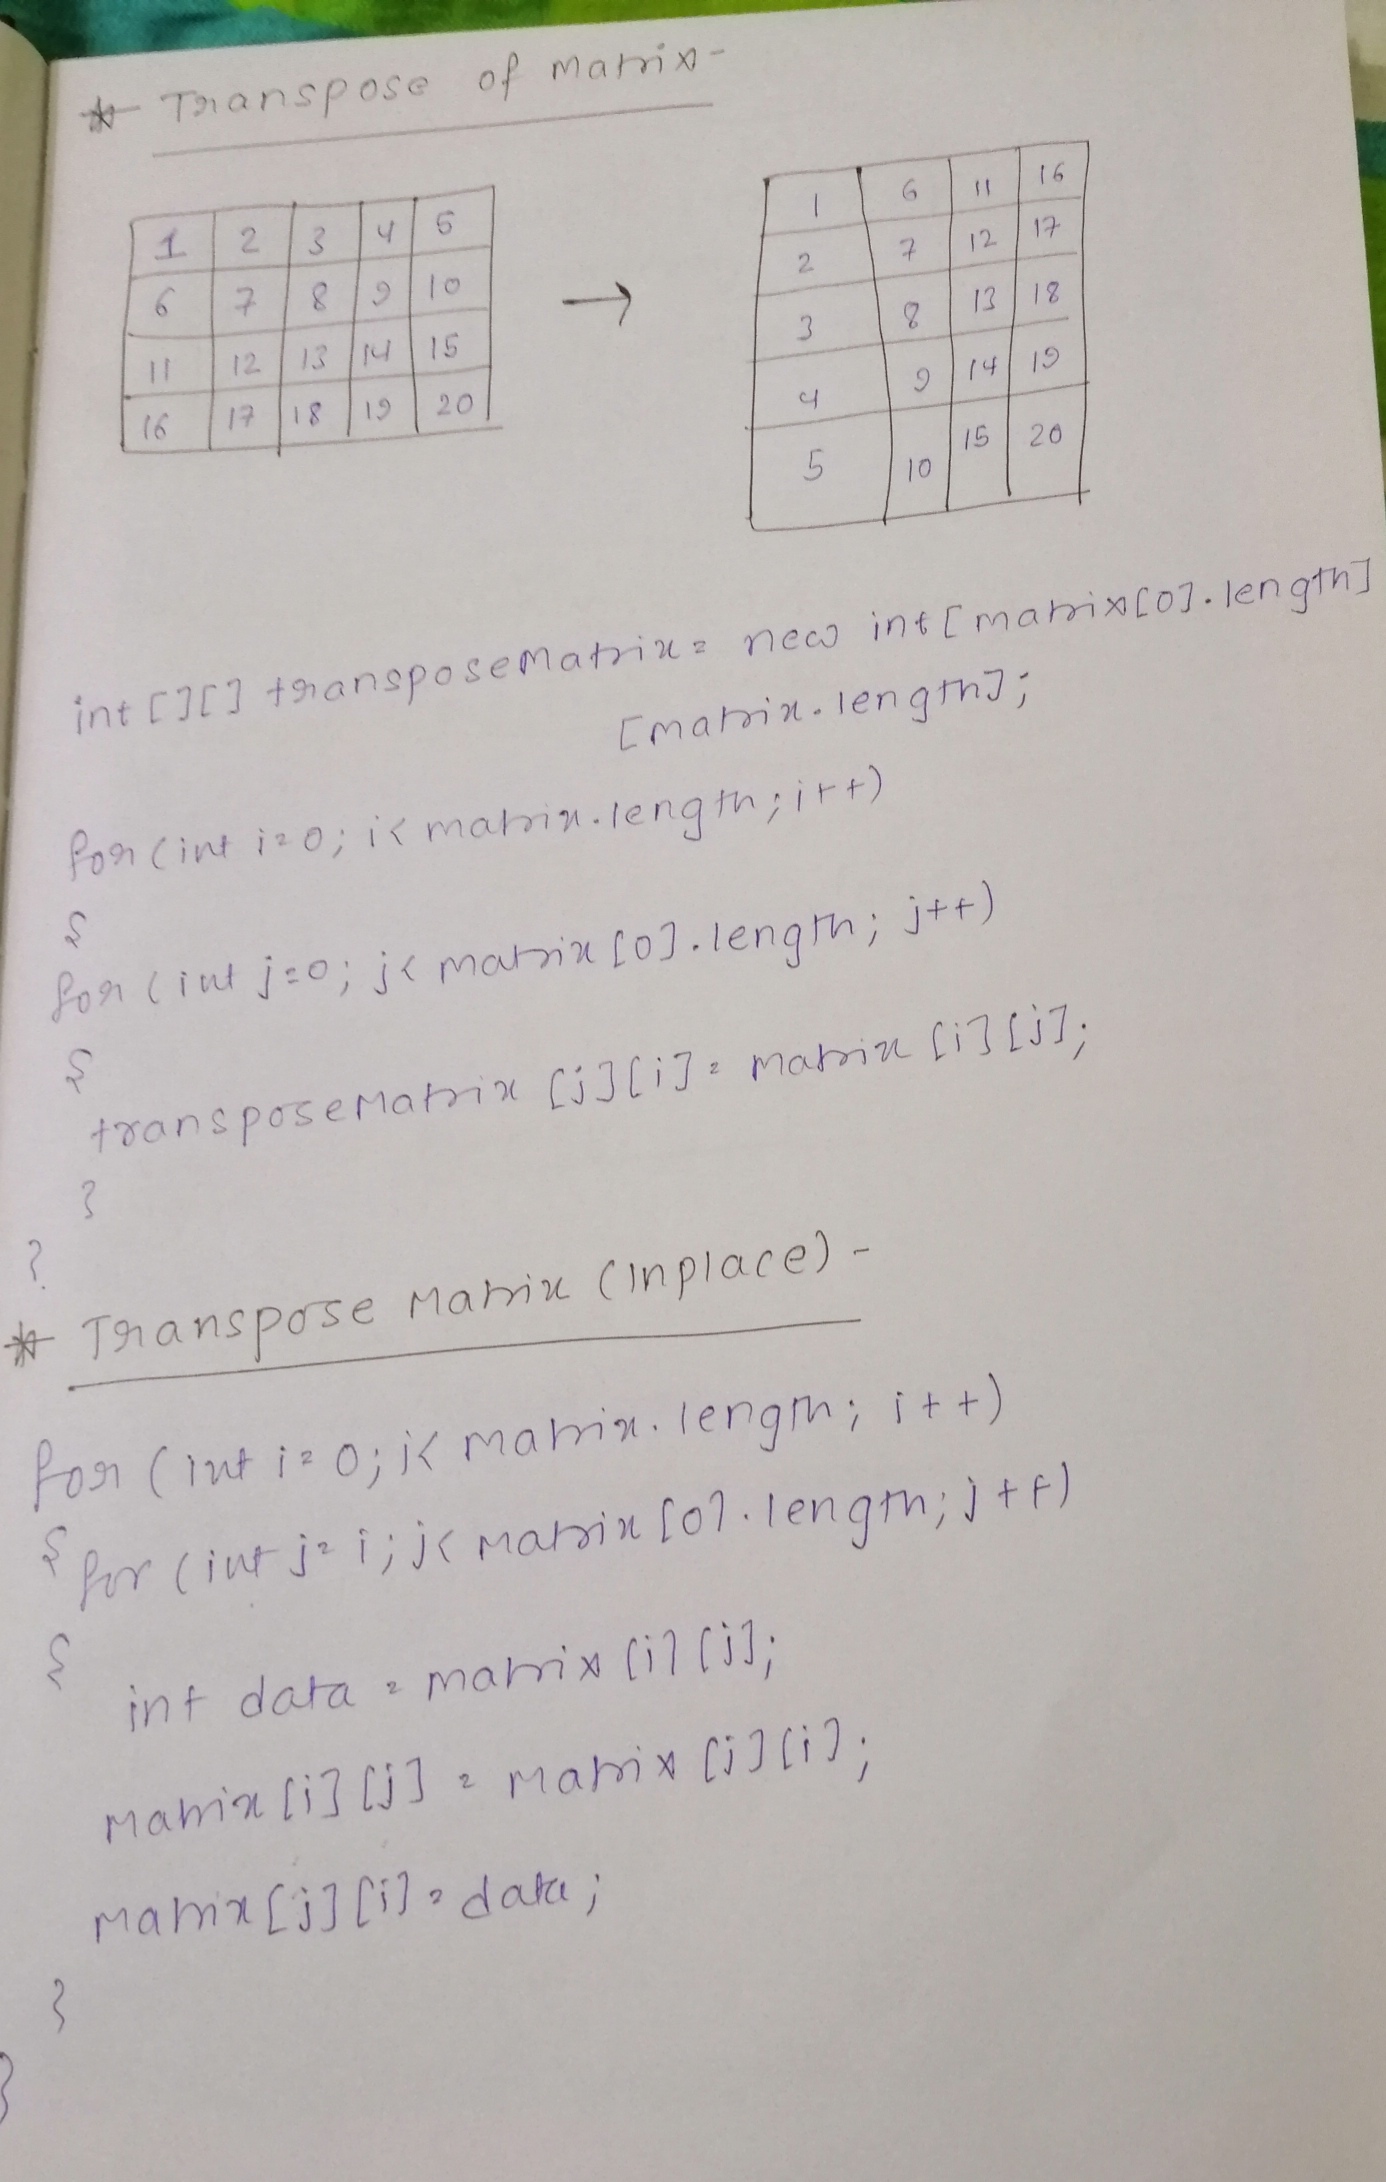 * Transpose of Matrix-
1 2 3 4 5
6 7 8 9 10
11 12 13 14 15
16 17 18 19 20
→
1 6 11 16
2 7 12 17
3 8 13 18
4 9 14 19
5 10 15 20
int [][] transposeMatrix = new int [matrix[0].length]
[matrix.length];
for (int i=0; i< matrix.length; i++)
{
for (int j=0; j< matrix [0].length; j++)
{
transposeMatrix [j][i] = matrix [i][j];
}
}
* Transpose Matrix (Inplace) -
for (int i=0; i< matrix.length; i++)
{ for (int j=i; j< matrix [0].length; j++)
{
int data = matrix [i][j];
matrix [i][j] = matrix [j][i];
matrix [j][i] = data;
}
}